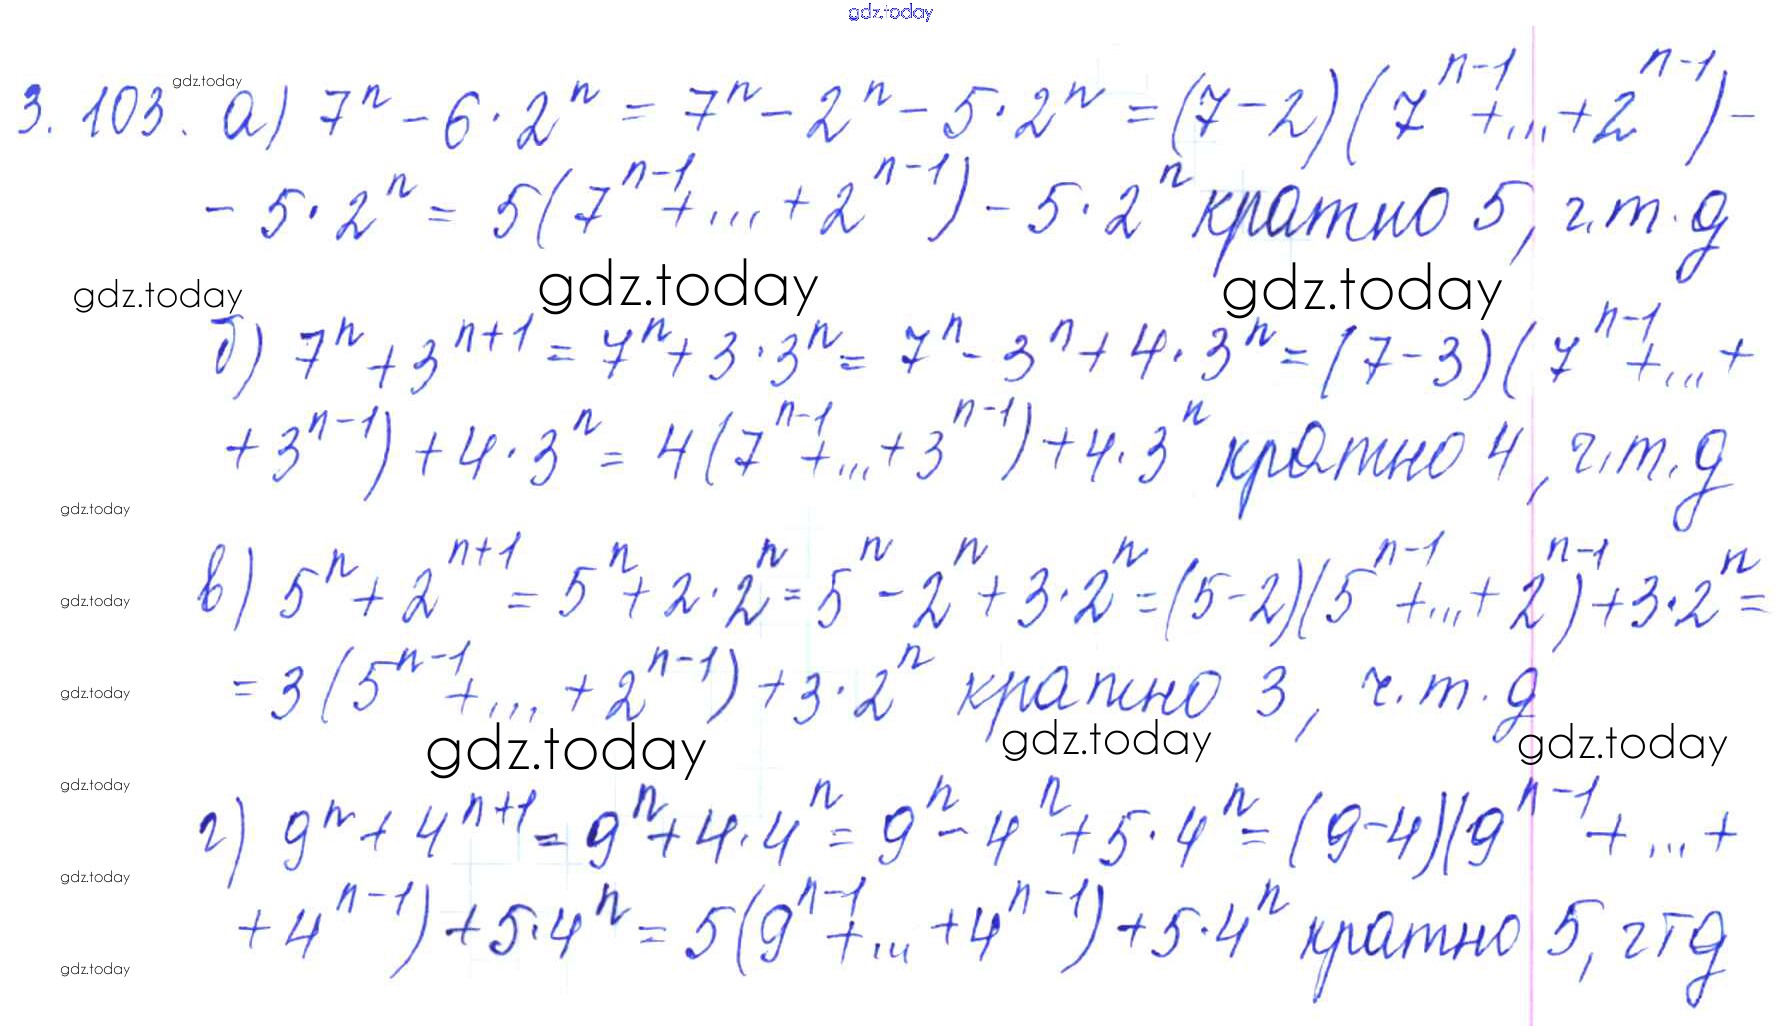 gdz.today
gdz.today
3.103. а) 7ⁿ - 6·2ⁿ = 7ⁿ - 2ⁿ - 5·2ⁿ = (7-2)(7ⁿ⁻¹+...+2ⁿ⁻¹) -
- 5·2ⁿ = 5(7ⁿ⁻¹+...+2ⁿ⁻¹) - 5·2ⁿ кратно 5, ч.т.д
gdz.today gdz.today gdz.today
б) 7ⁿ + 3ⁿ⁺¹ = 7ⁿ + 3·3ⁿ = 7ⁿ - 3ⁿ + 4·3ⁿ = (7-3)(7ⁿ⁻¹+...+
+3ⁿ⁻¹) + 4·3ⁿ = 4(7ⁿ⁻¹+...+3ⁿ⁻¹) + 4·3ⁿ кратно 4, ч.т.д
gdz.today
в) 5ⁿ + 2ⁿ⁺¹ = 5ⁿ + 2·2ⁿ = 5ⁿ - 2ⁿ + 3·2ⁿ = (5-2)(5ⁿ⁻¹+...+2ⁿ⁻¹) + 3·2ⁿ =
gdz.today
= 3(5ⁿ⁻¹+...+2ⁿ⁻¹) + 3·2ⁿ кратно 3, ч.т.д
gdz.today
gdz.today gdz.today gdz.today
gdz.today
г) 9ⁿ + 4ⁿ⁺¹ = 9ⁿ + 4·4ⁿ = 9ⁿ - 4ⁿ + 5·4ⁿ = (9-4)(9ⁿ⁻¹+...+
gdz.today
+4ⁿ⁻¹) + 5·4ⁿ = 5(9ⁿ⁻¹+...+4ⁿ⁻¹) + 5·4ⁿ кратно 5, чтд
gdz.today